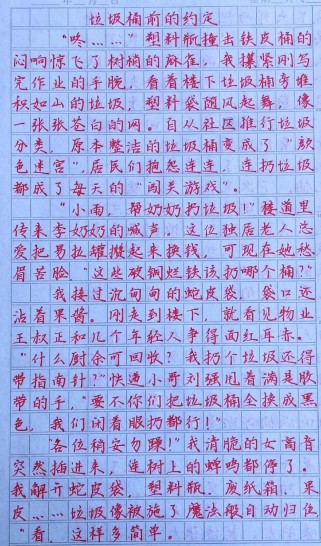 垃圾桶前的约定
"咚……"塑料瓶撞击铁皮桶的
闷响惊飞了树梢的麻雀，我攥紧刚写
完作业的手腕，看着楼下垃圾桶旁堆
积如山的垃圾，塑料袋随风起舞，像
一张张苍白的网。自从社区推行垃圾
分类，原本整洁的垃圾桶变成了"颜
色迷宫"，居民们抱怨连连，连扔垃圾
都成了每天的"闯关游戏"。
"小雨，帮奶奶扔垃圾！"楼道里
传来李奶奶的喊声。这位独居老人总
爱把易拉罐攒起来换钱，可现在她愁
眉苦脸"这些破铜烂铁该扔哪个桶？"
我接过沉甸甸的蛇皮袋，袋口还
沾着果酱。刚走到楼下，就看见物业
王叔正和几个年轻人争得面红耳赤。
"什么厨余可回收？我扔个垃圾还得
带指南针？"快递小哥刘强甩着满是胶
带的手，"要不你们把垃圾桶全换成黑
色，我们闭着眼扔都行！"
"各位稍安勿躁！"我清脆的女高音
突然插进来，连树上的蝉鸣都停了。
我解开蛇皮袋，塑料瓶、废纸箱、果
皮……垃圾像被施了魔法般自动归位
"看，这样多简单。